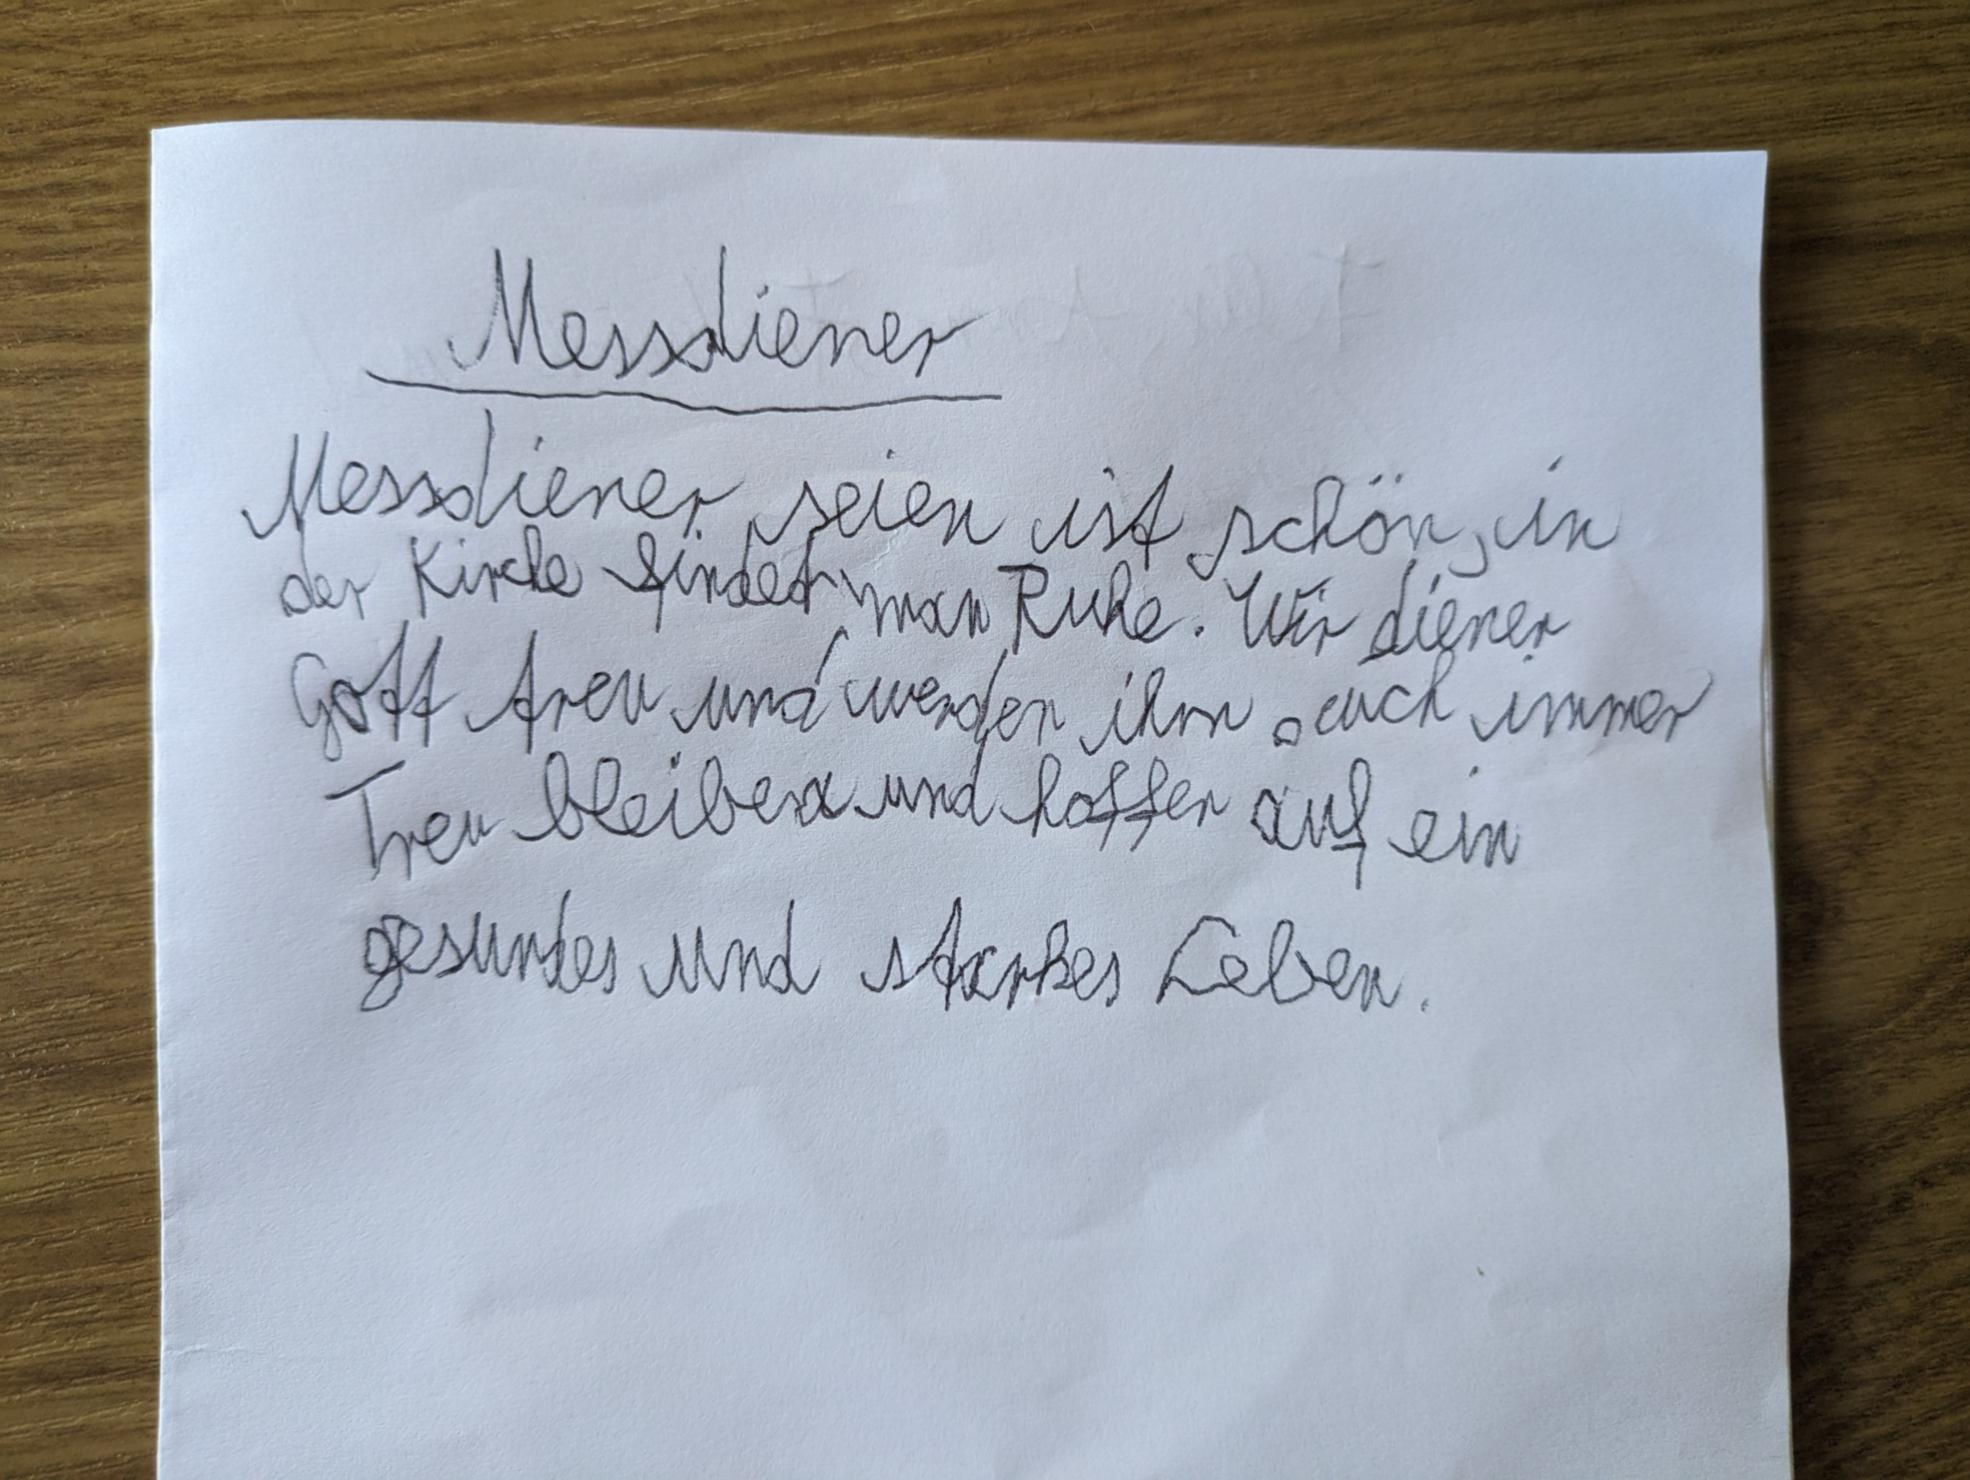 Messdiener
Messdiener seien ist schön, in
der Kirche findet man Ruhe. Wir dienen
Gott treu und werden ihm auch immer
Treu bleiben und hoffen auf ein
gesundes und starkes Leben.